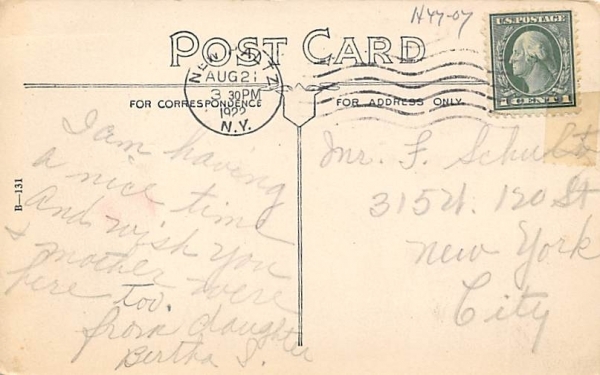 H47-07
U.S. POSTAGE
1 CENT 1
POST CARD
NEW PALTZ
AUG 21
3 30 PM
1922
N.Y.
FOR CORRESPONDENCE
FOR ADDRESS ONLY.
B—131
I am having
a nice time
and wish you
& mother were
here too.
from daughter
Bertha S.
Mr. F. Schultz
315 W. 120 St
New York
City